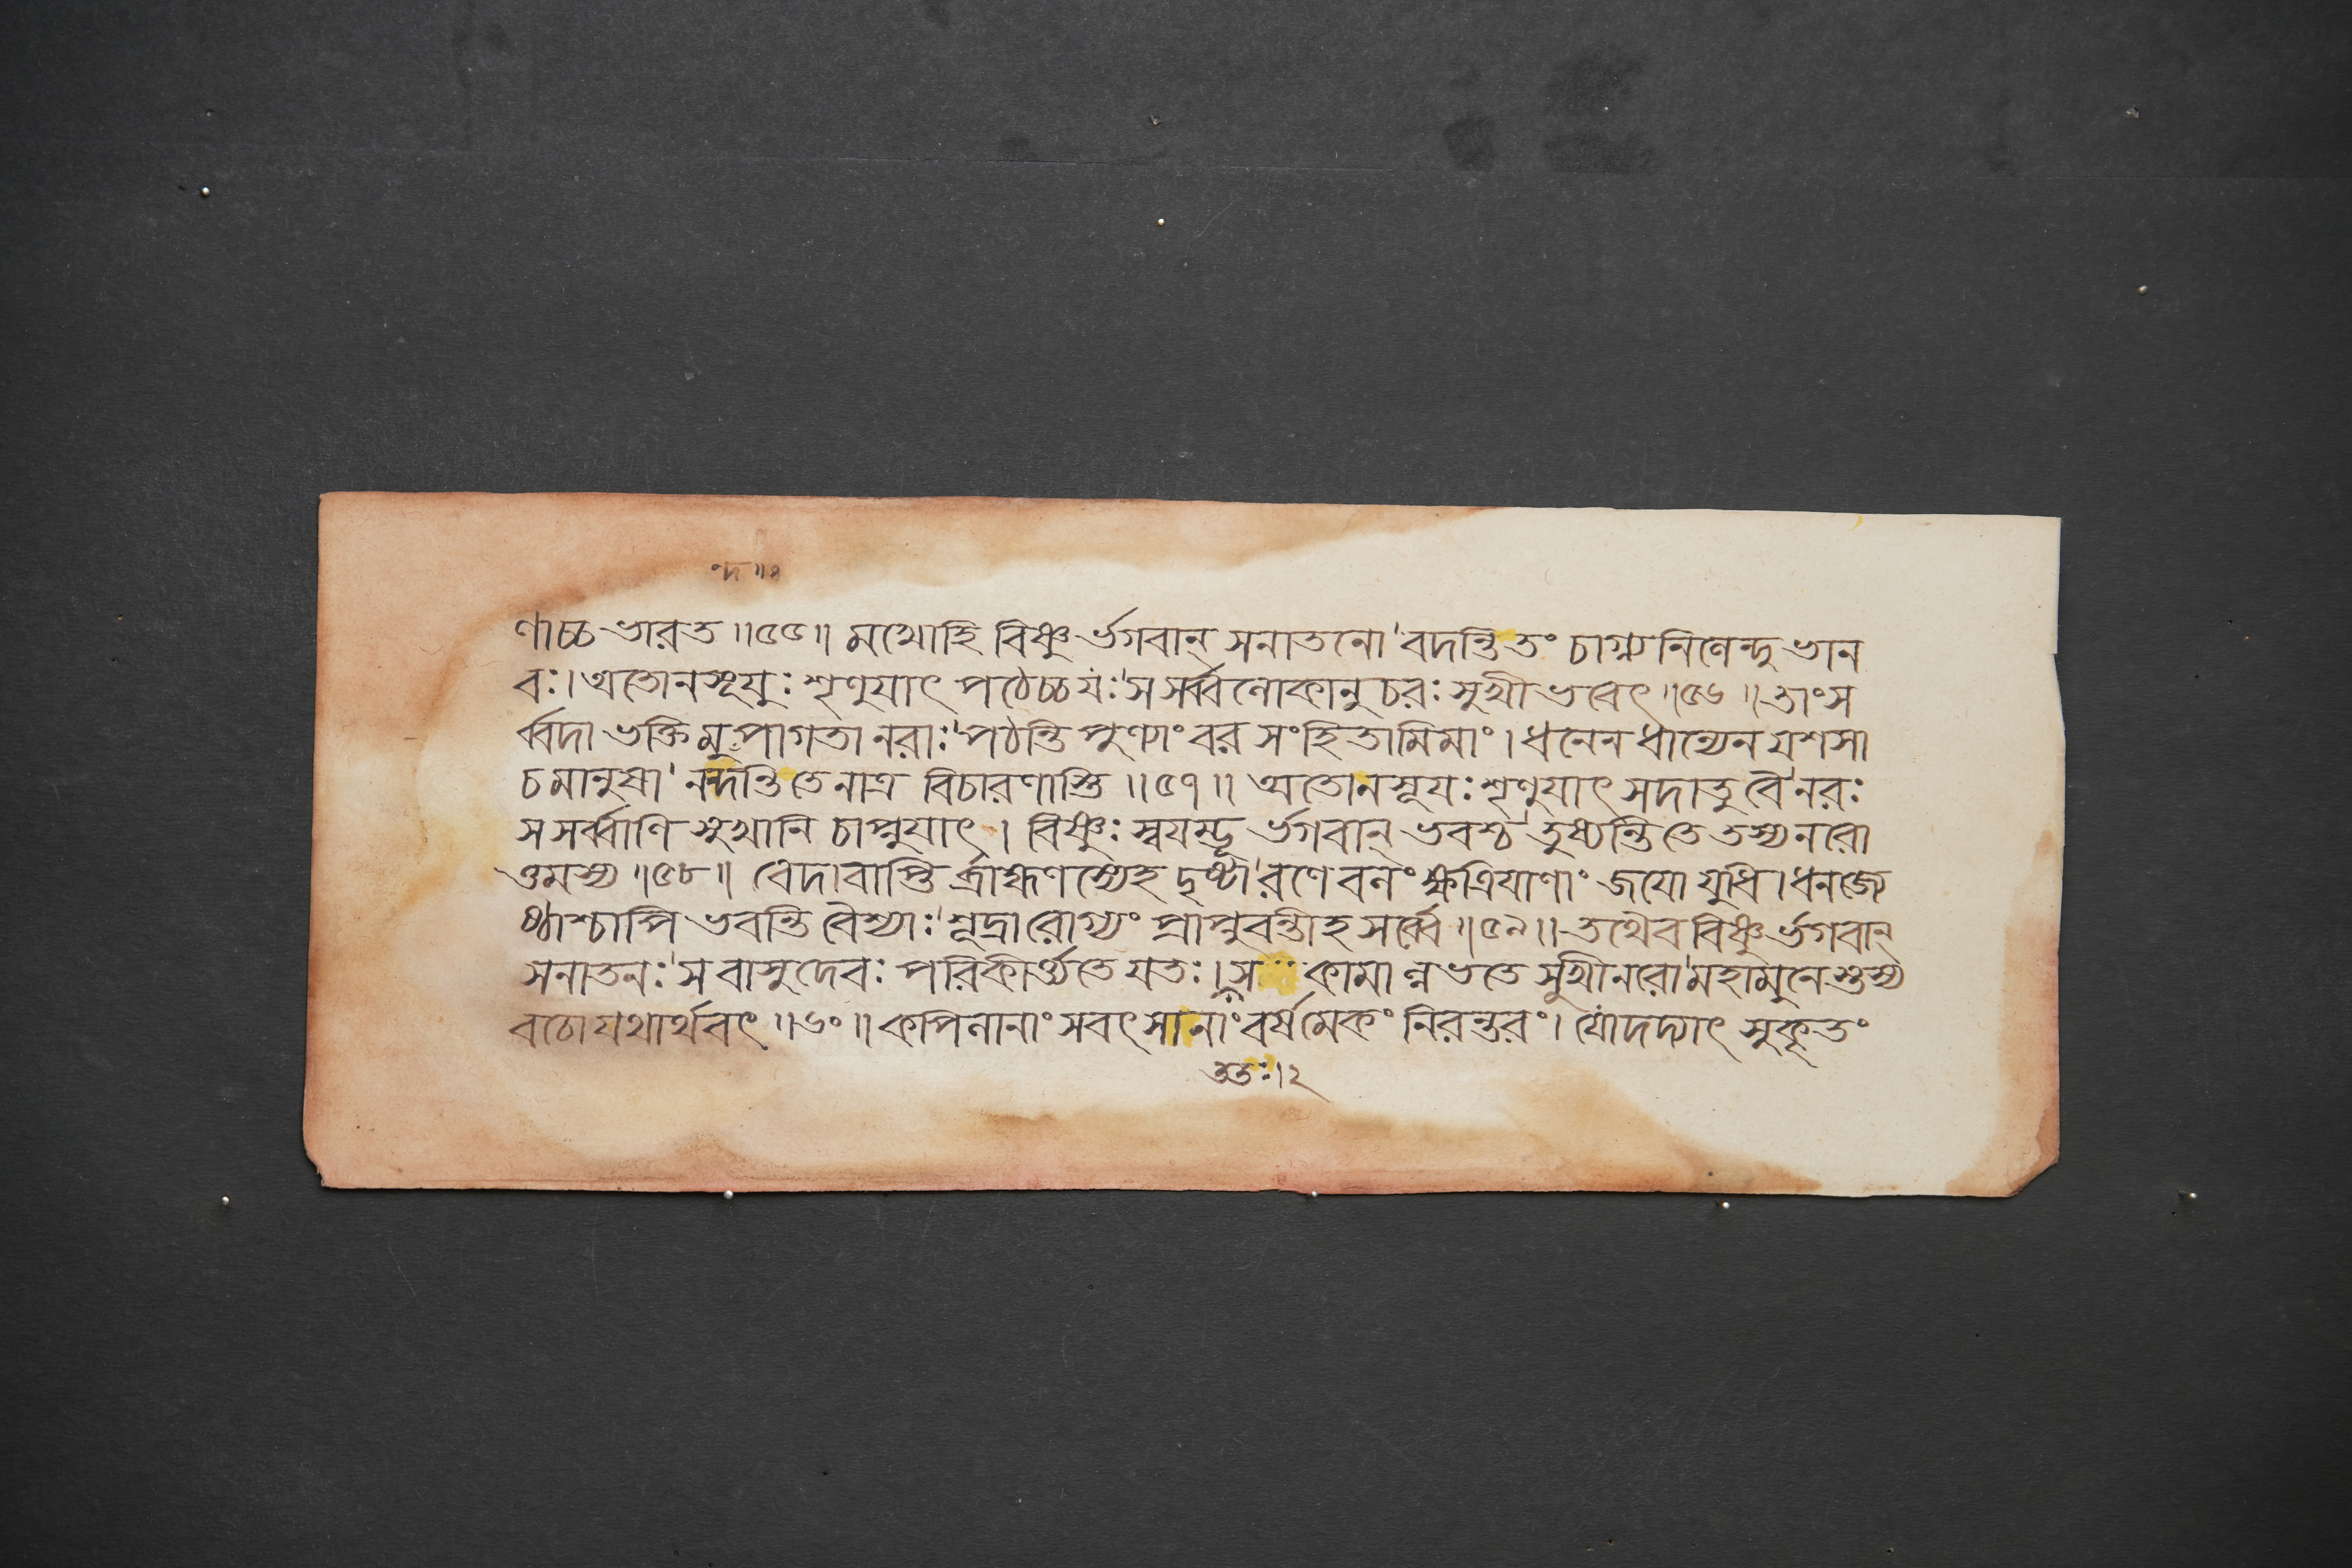 ন্দ ॥৪
ণাচ্চ ভারত ॥৫৫॥ মখোহি বিষ্ণু র্ভগবান্ সনাতনো'বদন্তি তং চাগ্ন্য নিণেন্দু ভান
বঃ। অতোনসূয়ুঃ শৃণুযাৎ পঠেচ্চযঃ'স সর্ব্বণোকানুচরঃ সুখী ভবেৎ ॥৫৬॥ তাং স
র্ব্বদা ভক্তিমুপাগতা নরাঃ'পঠন্তি পুণ্যাং বর সংহিতামিমাং। ধনেন ধান্যেন যশসা
চ মানুষা' নন্দন্তি তে নাত্র বিচারণাস্তি ॥৫৭॥ অতোনসূযঃ শৃণুযাৎ সদাতু বৈ'নরঃ
স সর্ব্বাণি সুখানি চাপ্নুযাৎ । বিষ্ণুঃ স্বযম্ভূ র্ভগবান্ ভবশ্চ'তুষ্যন্তি তে তস্য নরো
ত্তমস্য ॥৫৮॥ বেদাবাপ্তি র্ব্রাহ্মণস্যেহ দৃষ্টা'রণে বনং ক্ষত্রিযাণাং জযো যুধি। ধনজ্যে
ষ্ঠাশ্চাপি ভবন্তি বৈশ্যাঃ'শূদ্রারোগ্যং প্রাপ্নুবন্তীহ সর্ব্বে ॥৫৯॥ তথৈব বিষ্ণু র্ভগবান্
সনাতনঃ'স বাসুদেবঃ পরিকীর্ত্ত্যতে যতঃ। স কামান্ণভতে সুখীনরো'মহামুনে স্তস্য
বচো যথার্থবৎ ॥৬০॥ কপিনানাং সবৎসানাং বর্ষমেকং নিরন্তরং। যোদদ্যাৎ সুকৃতং
ততঃ।২